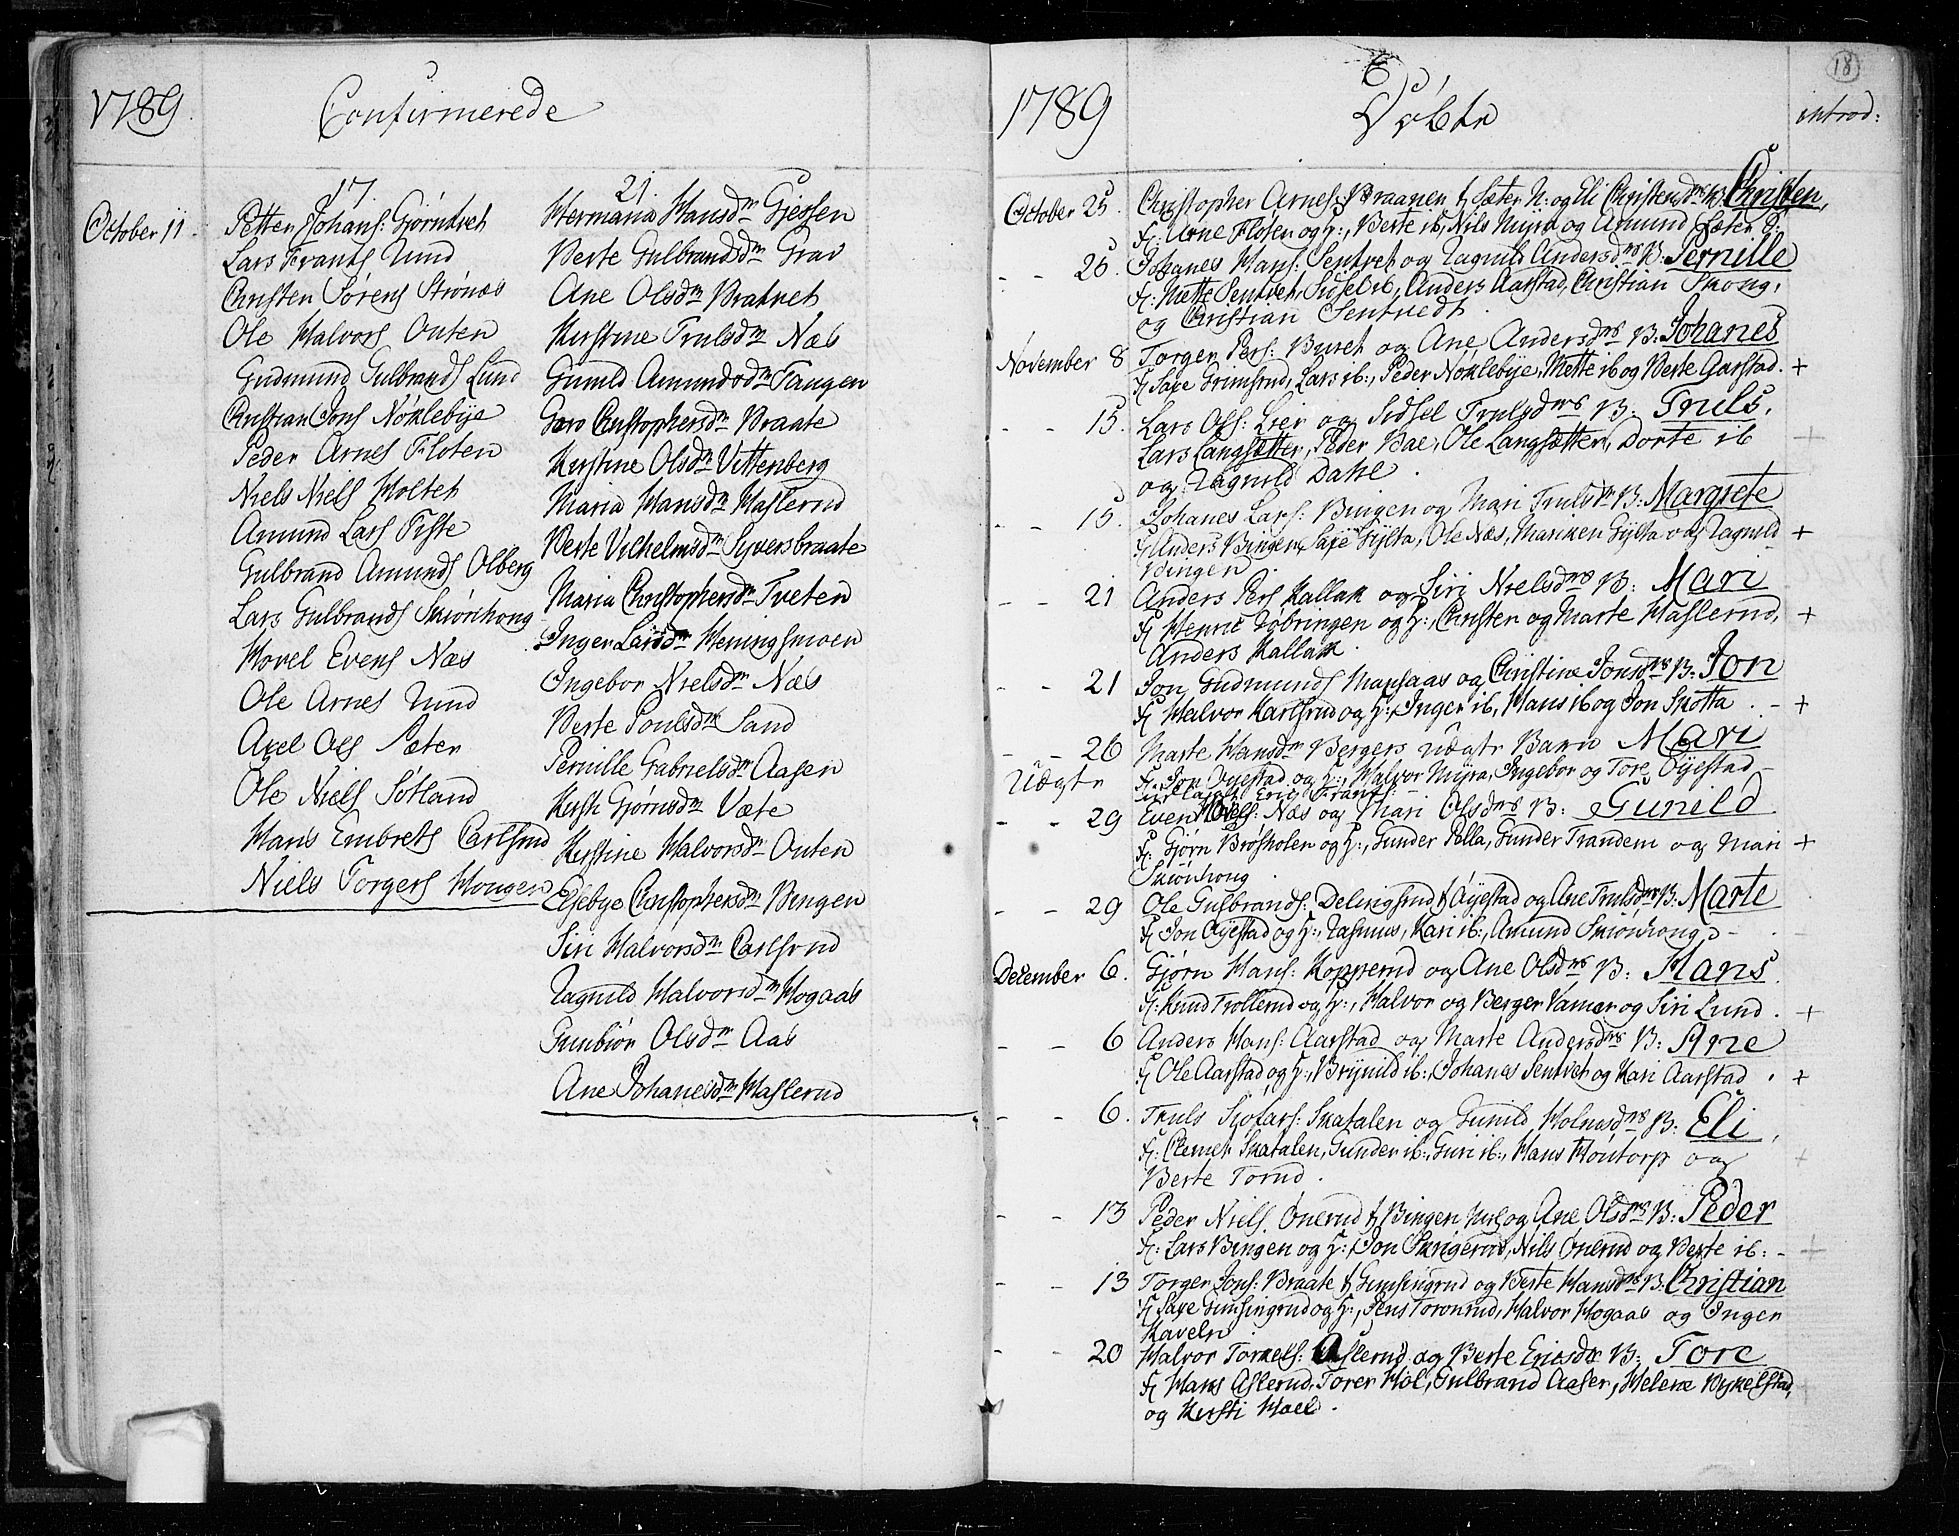 1789
Confirmerede
17
October 11
Petter Johans: Gjørntvet
Lars Frants Lund
Christen Sørens Strønæs
Ole Halvors Outen
Gudmund Gulbrands Lund
Christian Jons Nøklebije
Peder Arnes Floten
Niels Niels Holtet
Amund Lars Fiste
Gulbrand Amunds Olberg
Lars Gulbrands Skiønhoug
Hovel Evens Næs
Ole Arnes Lund
Axel Ols Sæter
Ole Niels Søtland
Hans Embrets Carlsrud
Niels Torgers Hougen
21
Hermana Hansdr Gjessen
Berte Gulbrandsdr Grav
Ane Olsdr Bratvet
Kirstine Trulsdr Næs
Gunild Amundsdr Tangen
Goro Christophersdr Braate
Kirstine Olsdr Vittenberg
Maria Hansdr Haslerud
Berte Vilhelmsdr Syversbraate
Maria Christophersdr Tveten
Inger Larsdr Heningsmoen
Ingebor Nielsdr Næs
Berte Poulsdr Sand
Pernille Gabrielsdr Aasen
Kirsti Gjørnsdr Væte
Kirstine Halvorsdr Outen
Elsebye Christophersdr Bingen
Siri Halvorsdr Carlsrud
Ragnild Halvorsdr Hogaas
Gunbiør Olsdr Aas
Ane Johanesdr Haslerud
18
1789
Døbte
introd:
October 25. Christopher Arnes: Braanen f Sæter N: og Eli Christensdrs B: Christen,
f: Arne Floten og H:, Berte ib, Nils Myra og Amund Sæter
- - 25 Johanes Hans: Sentvet og Ragnild Andersdrs B: Pernille
f: Mette Sentvet, Sidsel ib, Anders Aarstad, Christian Skoug,
og Christian Sentvedt.
November 8 Torger Pers: Buret og Ane Andersdrs B: Johanes
f Saxe Grimsrud, Lars ib:, Peder Nøklebije, Mette ib og Berte Aarstad. +
- - 15. Lars Ols: Lier og Sidsel Trulsdrs B: Truls.
Lars Langsætter, Peder Bae, Ole Langsætter, Dorte ib +
og Ragnild Dahle.
- - 15. Johanes Lars: Bingen og Mari Trulsdr B: Margrete
f Anders Bingen, Saxe Gylta, Ole Næs, Mariken Gylta og Ragnild +
Bingen
- - 21 Anders Pers Kallak og Siri Nielsdrs B: Mari
f Henric Dobringen og H:, Christen og Marte Haslerud, +
Anders Kallak.
- - 21 Jon Gudmunds Mansaas og Christine Jonsdrs B: Jon
f Halvor Karlsrud og H:, Inger ib, Hans ib og Jon Skotta. - +
- - 26 Marte Hansdr Bergers uægte Barn Mari
Uægte f: Jon Øyestad og H:, Halvor Myra, Ingebor og Tore Øyestad -
Eric Frants:
- - 29 Even Hovels: Næs og Mari Olsdrs B: Gunild
f: Gjørn Brøsholen og H:, Gunder Pella, Gunder Trandem og Mari +
Skiønhoug.
- - 29 Ole Gulbrands: Delingsrud f Øyestad og Ane Trulsdrs B: Marte
f Jon Øyestad og H:, Rasmus, Kari ib:, Amund Skiønhoug -
December 6. Gjørn Hans: Kopperud og Ane Olsdrs B: Hans.
f: Knud Trollerud og H:, Halvor og Berger Vamar og Siri Lund. +
- - 6 Anders Hans: Aarstad og Marte Andersdrs B: Arne
f Ole Aarstad og H:, Brynild ib:, Johanes Sentvet og Kari Aarstad. +
- - 6. Truls Skatalen og Gunild Holmsdrs B: Eli,
f: Clemet Skatalen, Gunder ib:, Guri ib:, Hans Høntorp og +
Berte Torud.
- - 13 Peder Niels. Ønerud f Bingen og Ane Olsdrs B: Peder
f: Lars Bingen og H:, Jon Skrigerod, Nils Ønerud og Berte ib: - +
- - 13 Torger Jons: Braate f Gunsingrud og Berte Hansdrs B: Christian
f Saxe Gunsingrud og H:, Jens Toronrud, Halvor Hogaas og Inger
Haveln
- - 20 Halvor Torkels: Aslerud og Berte Ericsdr B: Tore
f Hans Aslerud, Torer Hol, Gulbrand Aaser, Helene Bykelstad, +
og Kirsti Hoel.